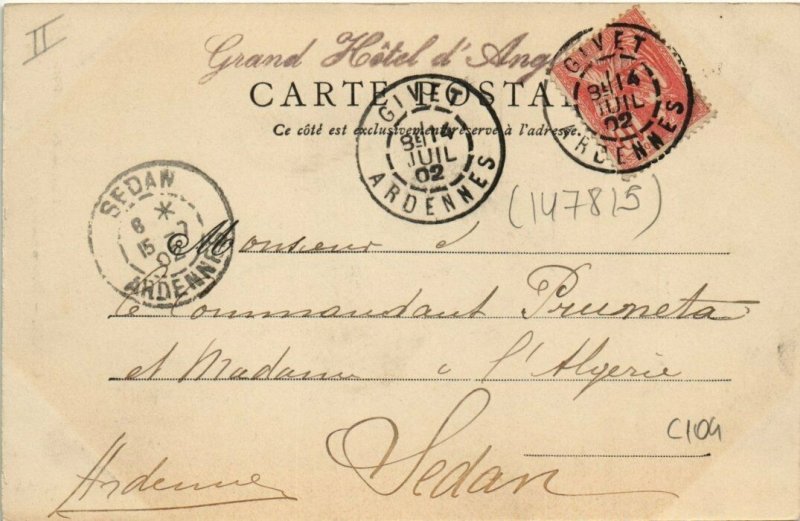 II
Grand Hôtel d'Ang
CARTE POSTAL
Ce côté est exclusivement réservé à l'adresse.
GIVET
8E 14
JUIL
02
ARDENNES
GIVET
8E 14
JUIL
02
ARDENNES
SEDAN
6 *
15 -7
02
ARDENNES
(147815)
Monsieur
le Commandant Pruoneta
et Madame à l'Algérie
C104
Sedan
Ardennes